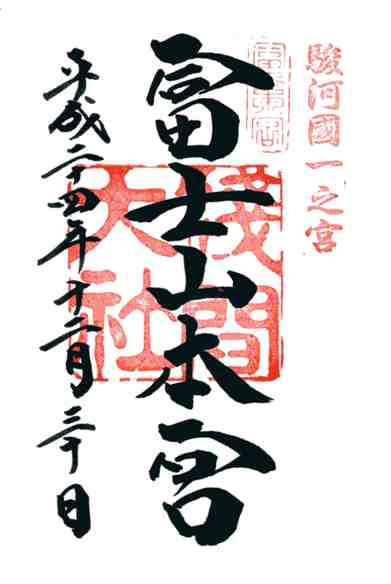 駿河國一之宮
冨士山本宮
淺間大社
平成二十四年十二月三十日